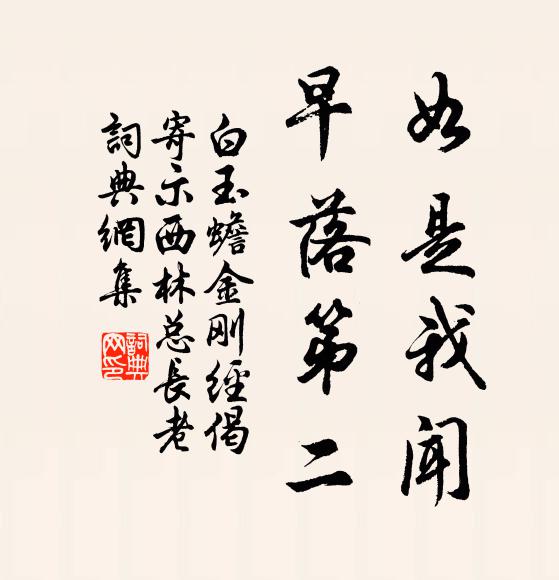 如是我闻
早落第二
白玉蟾金刚經偈
寄示西林总長老
詞典網集
詞典
网印